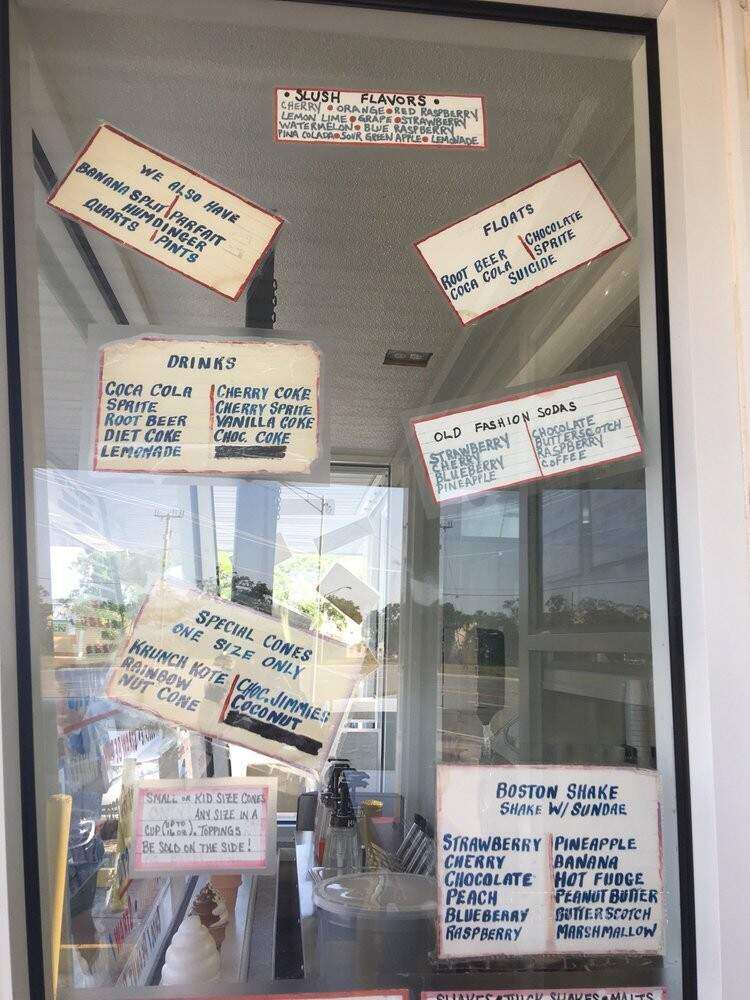 • SLUSH FLAVORS •
CHERRY • ORANGE • RED RASPBERRY
LEMON LIME • GRAPE • STRAWBERRY
WATERMELON • BLUE RASPBERRY
PINA COLADA • SOUR GREEN APPLE • LEMONADE
WE ALSO HAVE
BANANA SPLIT PARFAIT
HUMDINGER
QUARTS PINTS
FLOATS
ROOT BEER CHOCOLATE
COCA COLA SPRITE
SUICIDE
DRINKS
COCA COLA CHERRY COKE
SPRITE CHERRY SPRITE
ROOT BEER VANILLA COKE
DIET COKE CHOC. COKE
LEMONADE
OLD FASHION SODAS
STRAWBERRY CHOCOLATE
CHERRY BUTTERSCOTCH
BLUEBERRY RASPBERRY
PINEAPPLE COFFEE
SPECIAL CONES
ONE SIZE ONLY
KRUNCH KOTE CHOC. JIMMIES
RAINBOW COCONUT
NUT CONE
SMALL OR KID SIZE CONES
ANY SIZE IN A
CUP (UP TO 16 OZ). TOPPINGS
BE SOLD ON THE SIDE!
BOSTON SHAKE
SHAKE W/ SUNDAE
STRAWBERRY PINEAPPLE
CHERRY BANANA
CHOCOLATE HOT FUDGE
PEACH PEANUT BUTTER
BLUEBERRY BUTTERSCOTCH
RASPBERRY MARSHMALLOW
SHAKES • THICK SHAKES • MALTS